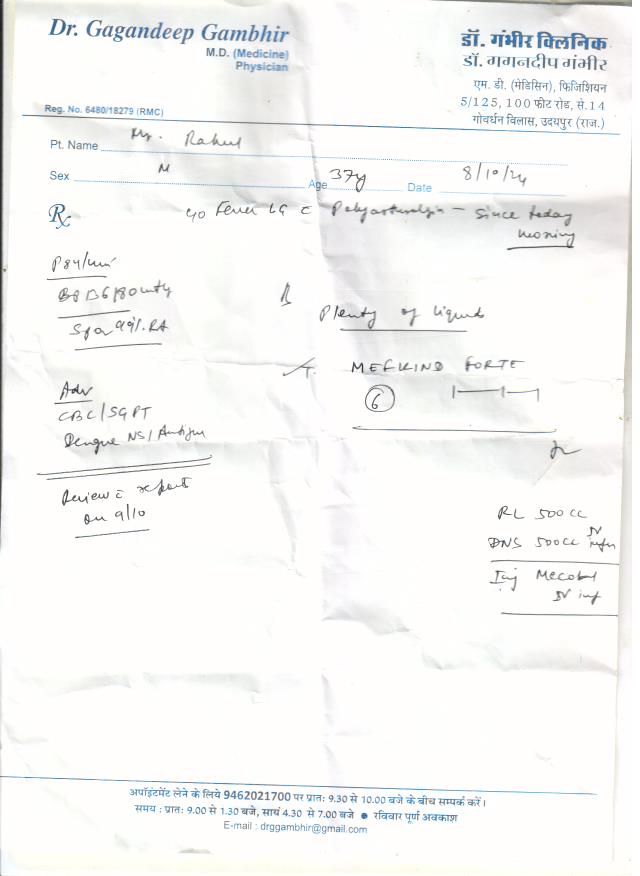 Dr. Gagandeep Gambhir
M.D. (Medicine)
Physician
Reg. No. 6480/18279 (RMC)
डॉ. गंभीर क्लिनिक
डॉ. गगनदीप गंभीर
एम. डी. (मेडिसिन), फिजिशियन
5/125, 100 फीट रोड, से.14
गोवर्धन विलास, उदयपुर (राज.)
Pt. Name Mr. Rahul
Sex M Age 37y Date 8/10/24
Rx
c/o Fever c Polyarthralgia - since today
morning
P 84/min
BP 136/80 mmHg
Spo2 99% RA
Adv
CBC/SGPT
Dengue NS1 Antigen
Review c report
on 9/10
Plenty of liquids
T. MEFKIND FORTE
6
RL 500 cc
DNS 500 cc IV infn
Inj Mecobal
IV inf
अपॉइंटमेंट लेने के लिये 9462021700 पर प्रातः 9.30 से 10.00 बजे के बीच सम्पर्क करें।
समय : प्रातः 9.00 से 1.30 बजे, सायं 4.30 से 7.00 बजे ● रविवार पूर्ण अवकाश
E-mail : drggambhir@gmail.com